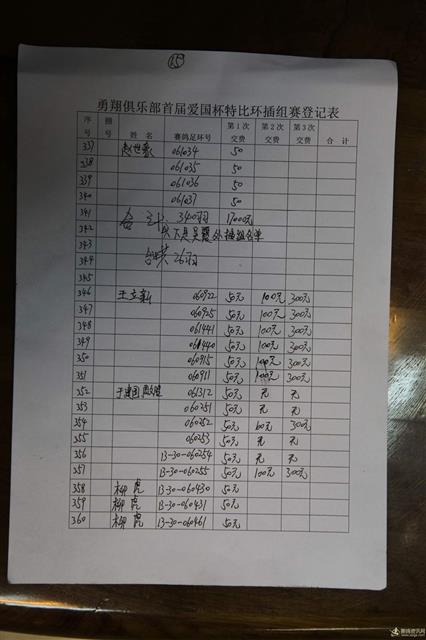 159
勇翔俱乐部首届爱国杯特比环插组赛登记表
序号 捆号 姓名 赛鸽足环号 第1次交费 第2次交费 第3次交费 合计
337 赵世豪 061034 50
338 061035 50
339 061036 50
340 061037 50
341 合计 340羽 17000元
342 以下是吴霞外插组名单
343
344 26羽
345
346 王立新 060922 50元 100元 300元
347 060925 50元 100元 300元
348 061441 50元 100元 300元
349 061440 50元 100元 300元
350 060915 50元 100元 300元
351 060911 50元 100元 300元
352 061312 50元 元 元
353 060251 50元 元 元
354 060252 50元 300元
355 060253 50元 元 元
356 13-30-060254 50元 元 元
357 13-30-060255 50元 100元 300元
358 柳虎 13-30-060430 50元
359 柳虎 13-30-060431 50元
360 柳虎 13-30-060461 50元